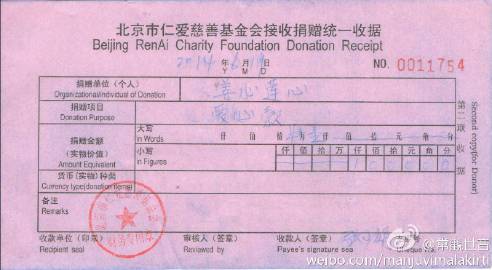 北京市仁爱慈善基金会接收捐赠统一收据
Beijing RenAi Charity Foundation Donation Receipt
2014 年 月 日
Y M D
NO. 0011754
捐赠单位（个人）
Organizational/individual of Donation
捐赠项目
Donation Purpose
捐赠金额
（实物价值）
Amount Equivalent
大写
in Words
仟 佰 拾 万 仟 佰 拾 元 角 分
小写
in Figures
仟 佰 拾 万 仟 佰 拾 元 角 分
货币（实物）种类
Currency type(donation items)
备注
Remarks
收款单位（印章）
Recipient seal
审核人（签章）
Reviewed by
收款人（签章）
Payee's signature sea
支票号
Cheque No.
第二联 收据
Second copy(for Donor)
weibo.com/manjuvimalakirti